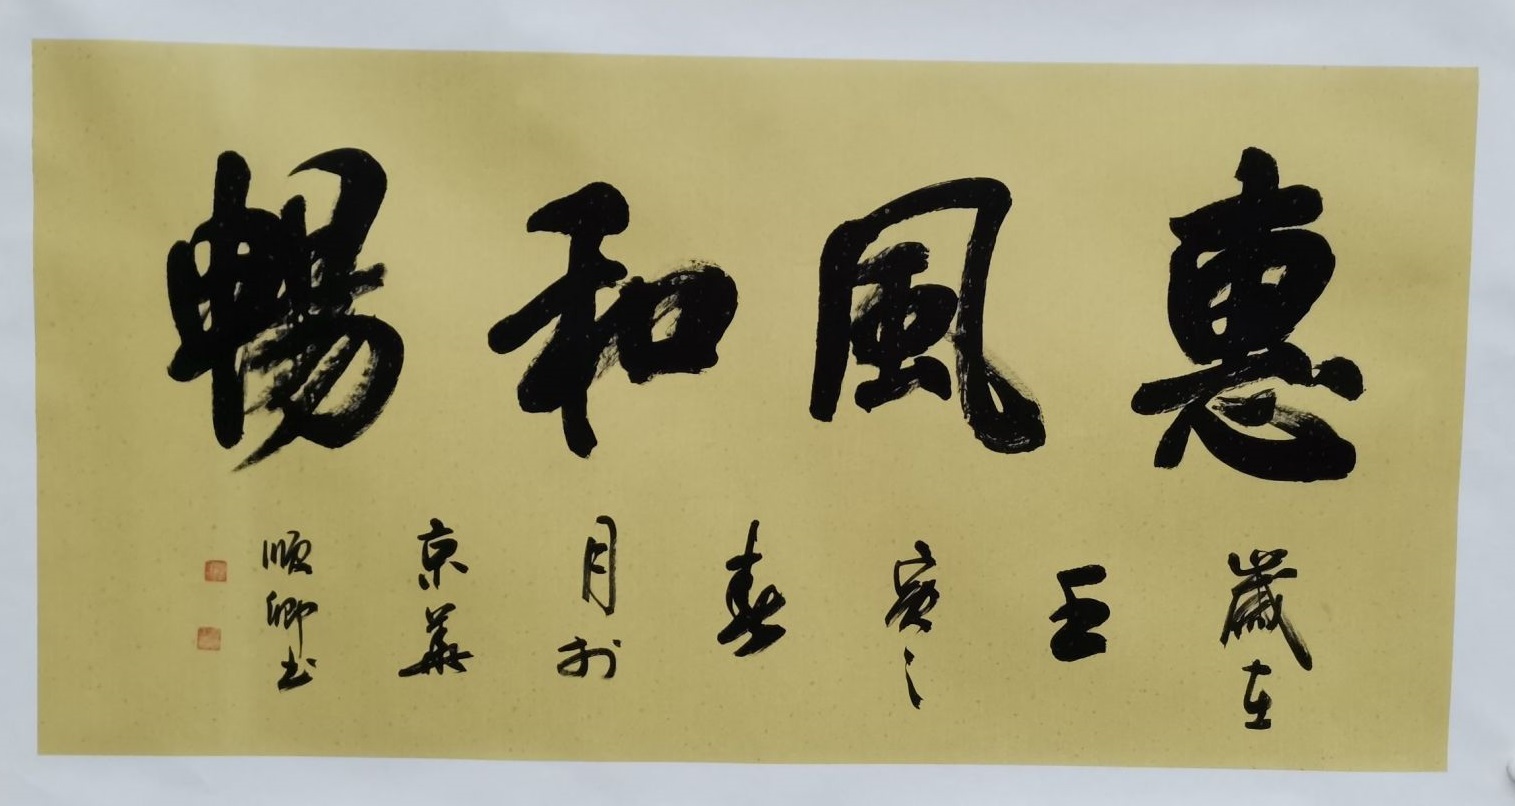 惠風和暢
歲在
壬
寅之
春
月於
京華
順卿书